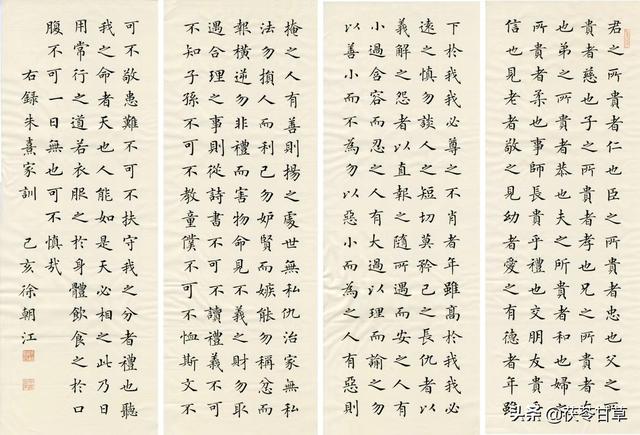 君之所貴者仁也臣之所貴者忠也父之所
貴者慈也子之所貴者孝也兄之所貴者友
也弟之所貴者恭也夫之所貴者和也婦之
所貴者柔也事師長貴乎禮也交朋友貴乎
信也見老者敬之見幼者愛之有德者年雖
下於我我必尊之不肖者年雖高於我我必
遠之慎勿談人之短切莫矜己之長仇者以
義解之怨者以直報之隨所遇而安之人有
小過含容而忍之人有大過以理而諭之勿
以善小而不為勿以惡小而為之人有惡則
掩之人有善則揚之處世無私仇治家無私
法勿損人而利己勿妒賢而嫉能勿稱忿而
報橫逆勿非禮而害物命見不義之財勿取
遇合理之事則從詩書不可不讀禮義不可
不知子孫不可不教童僕不可不恤斯文不
可不敬患難不可不扶守我之分者禮也聽
我之命者天也人能如是天必相之此乃日
用常行之道若衣服之於身體飲食之於口
腹不可一日無也可不慎哉
右錄朱熹家訓 己亥徐朝江
头条 @茯苓甘草